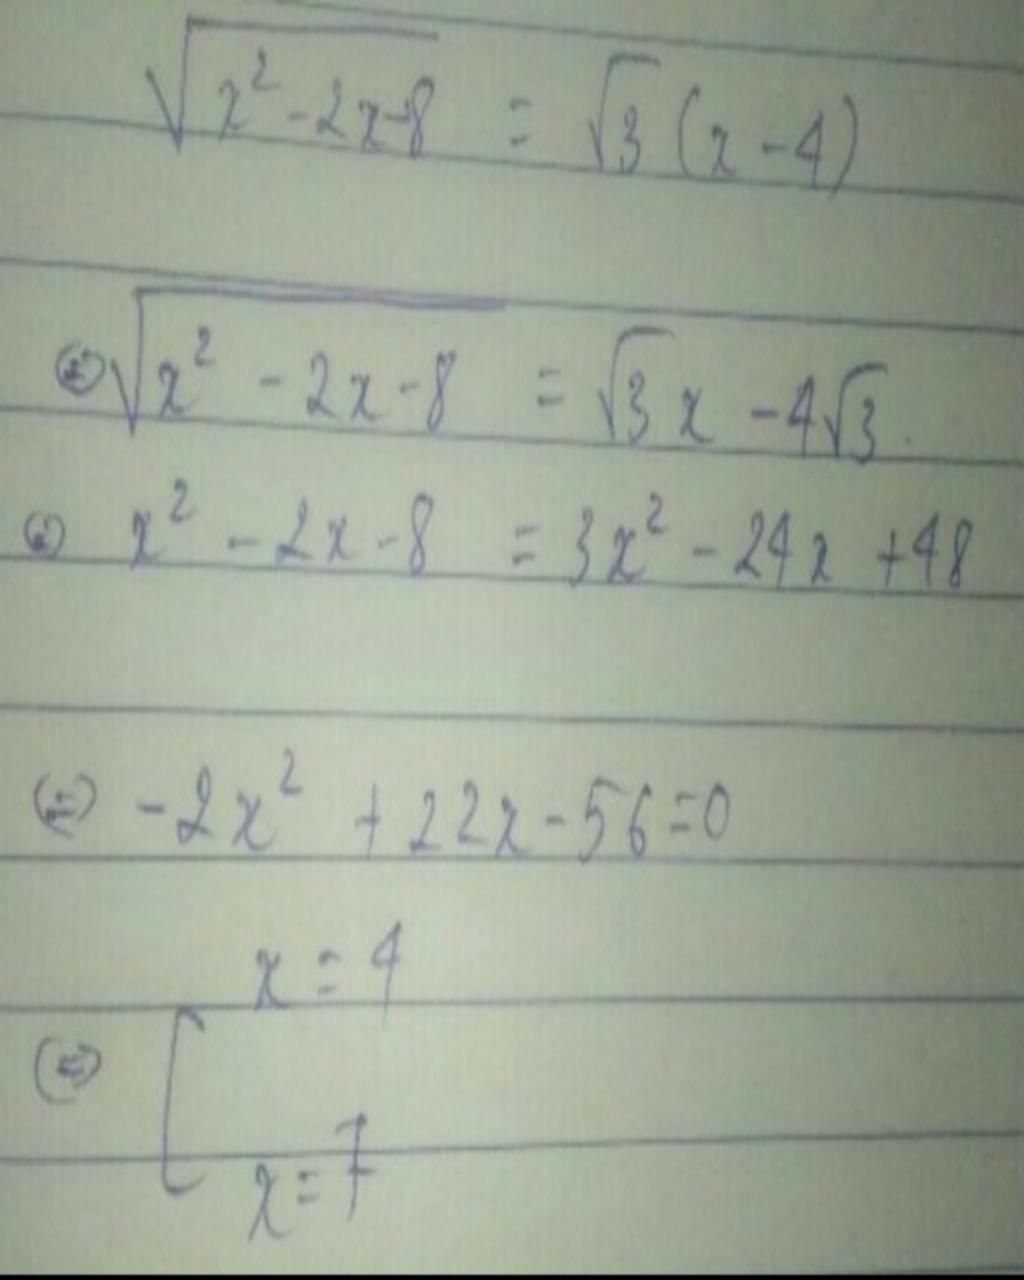 √(x² - 2x - 8) = √3 (x - 4)
⇔ √(x² - 2x - 8) = √3 x - 4√3.
⇔ x² - 2x - 8 = 3x² - 24x + 48
⇔ -2x² + 22x - 56 = 0
x = 4
⇔ [
x = 7